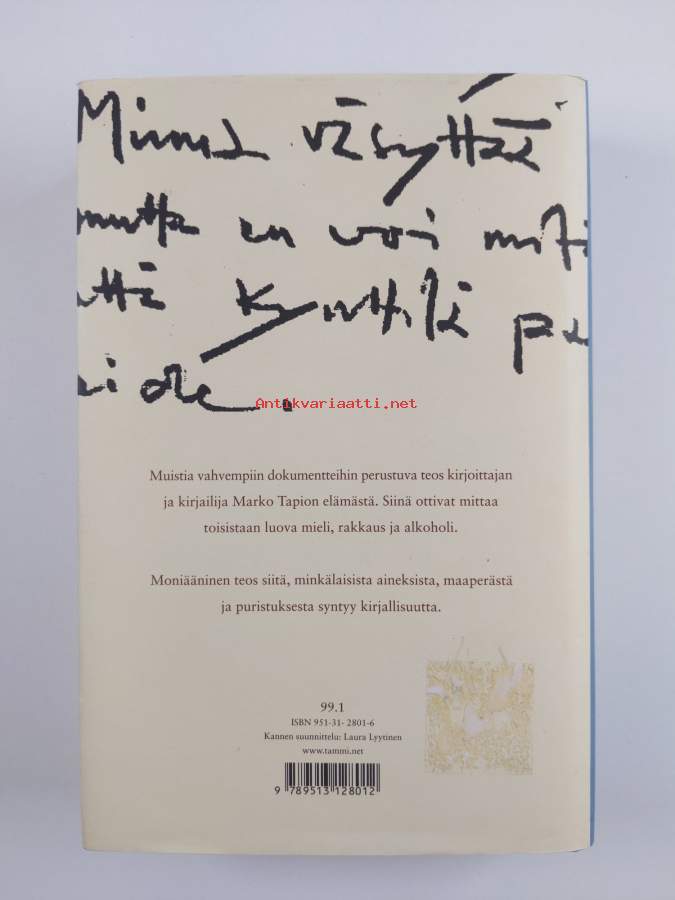 Minua väsyttää
mutta en voi mitä
että Kynttilä pa
Antikvariaatti.net
Muistia vahvempiin dokumentteihin perustuva teos kirjoittajan
ja kirjailija Marko Tapion elämästä. Siinä ottivat mittaa
toisistaan luova mieli, rakkaus ja alkoholi.
Moniääninen teos siitä, minkälaisista aineksista, maaperästä
ja puristuksesta syntyy kirjallisuutta.
99.1
ISBN 951-31- 2801-6
Kannen suunnittelu: Laura Lyytinen
www.tammi.net
9 789513 128012